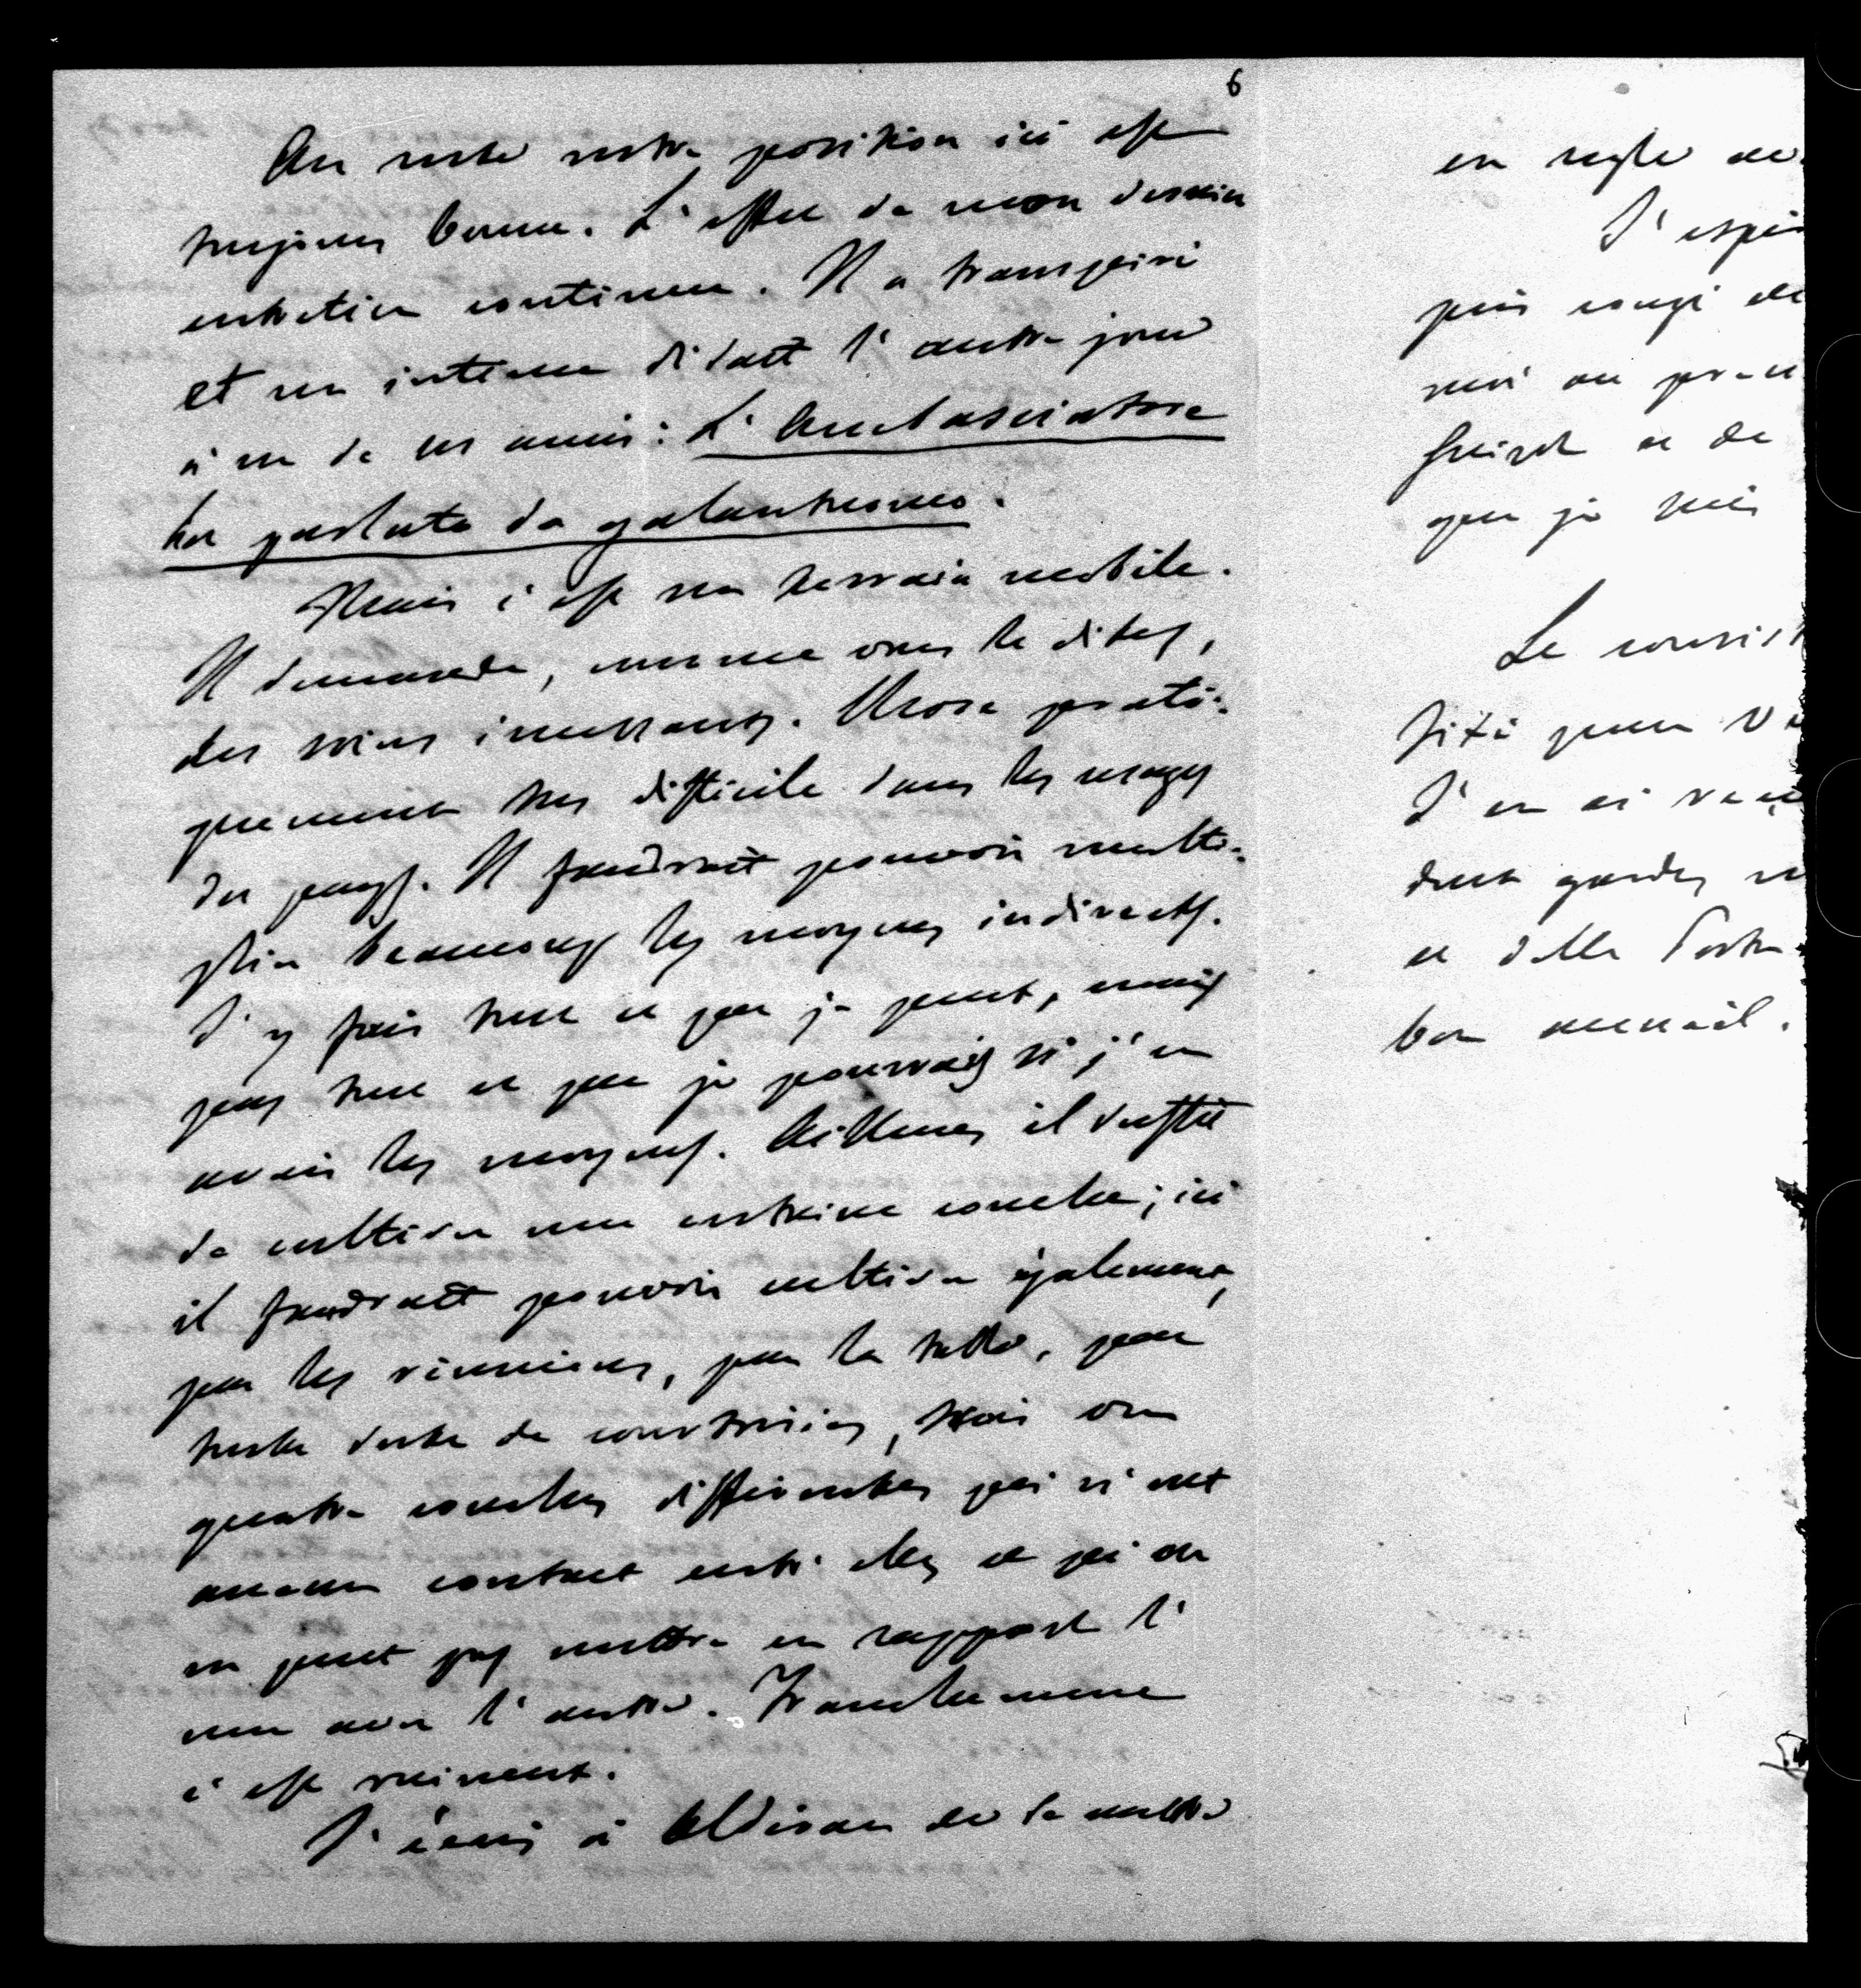 6
Au reste notre position ici est
toujours bonne. L'effet de mon dernier
entretien continue. Il a transpiré
et un intime disait l'autre jour
à un de ses amis : L'Ambasciatore
ha parlato da galantuomo.
Mais c'est un terrain mobile.
Il demande, comme vous le dites,
des soins incessants. Chose prati-
quement très difficile dans les usages
du pays. Il faudrait pouvoir multi-
plier beaucoup les moyens indirects.
J'y fais tout ce que je peux, mais
pas tout ce que je pourrais si j'en
avais les moyens. Ailleurs il suffit
de cultiver une certaine couche ; ici
il faudrait pouvoir cultiver également,
par les réunions, par la table, par
toute sorte de courtoisies, trois ou
quatre couches différentes qui n'ont
aucun contact entr'elles et qu'on
ne peut pas mettre en rapport l'
une avec l'autre. Franchement
c'est ruineux.
J'écris à de se mettre
en règle av
J'espè
puis congé de
moi au
Guizot et de
que je suis
Le consist
fixé pour
J'en ai
deux gardes
et della Porta
bon accueil.